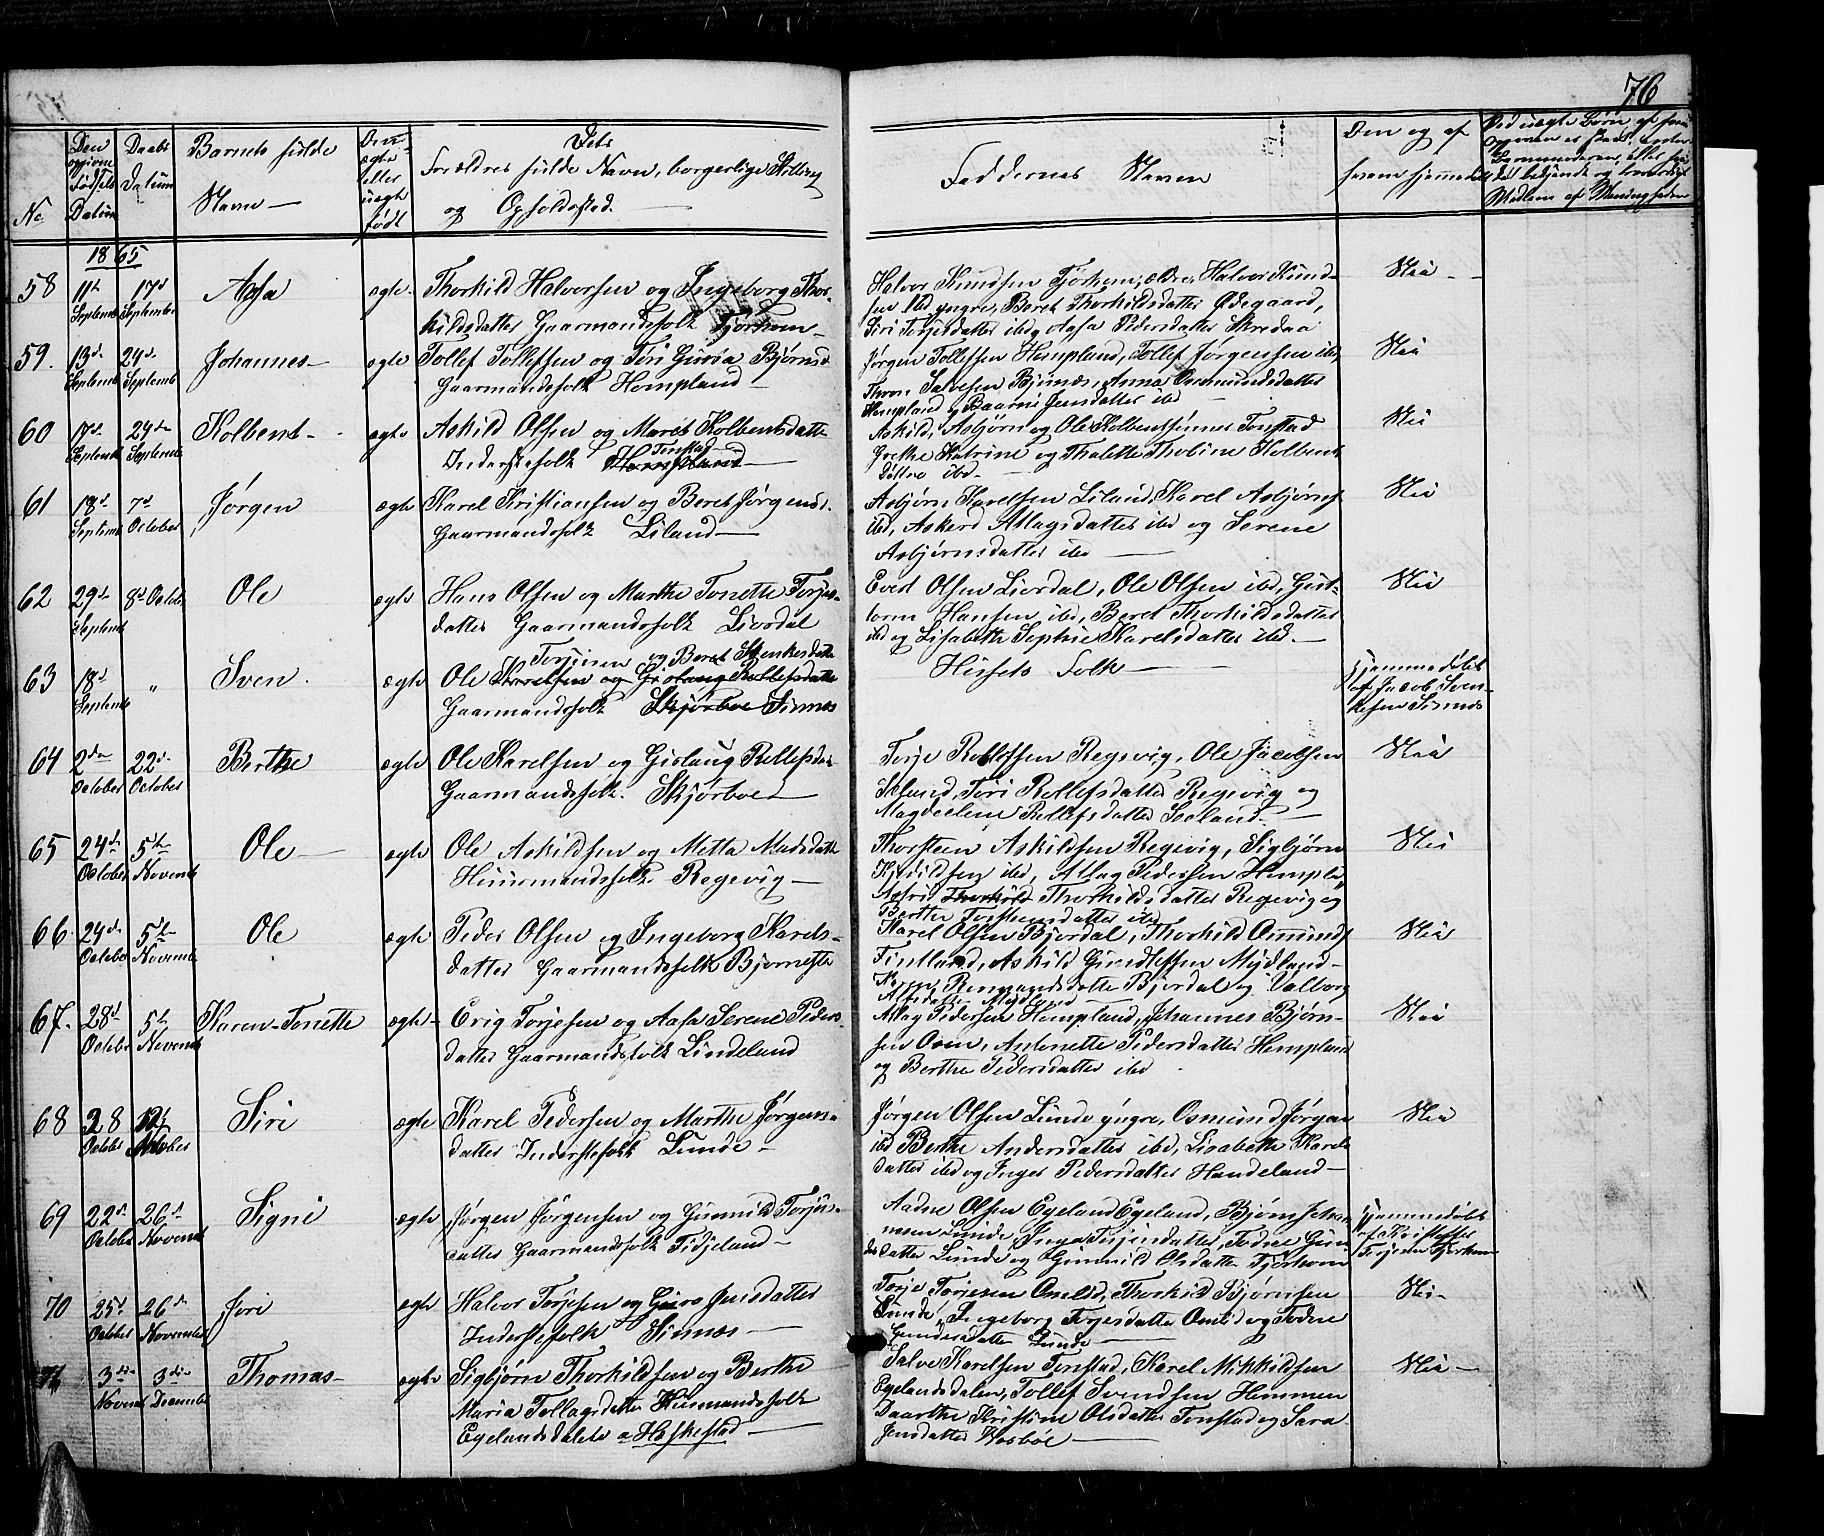 76
No
Den opgivne Fødsels Datum
Daabs Datum
Barnets fulde Navn
Om ægte eller uægte født
Dets
Forældres fulde Navn, borgerlige Stilling
og Opholdssted.
Faddernes Navne
Om og af
hvem hjemmedøbt
Ved uægte Børn
Medlem af Menigheden
1865
58 11te September 17d September Aasa ægte Thorkild Halvorsen og Ingeborg Thor-
kildsdatter Gaarmandsfolk Tjørhom
Halvor Knudsen Tjørhom ældre, Halvor Knud-
sen ibd yngre, Beret Thorkildsdatter Ødegaard,
Siri Torjesdatter ibd og Aasa Pedersdatter Skredaa
Nei
59. 13de September 24d September Johannes ægte Tollef Tollefsen og Tori Guria Bjørnsd
Gaarmandsfolk Hompland
Jørgen Tollefsen Hompland, Tollef Jørgensen ibd,
Thron Salvesen Bjunæs, Anna Osmundsdatter
Hompland og Baarni Jensdatter ibd
Nei
60 17d September 24de September Kolbent ægte Askild Olsen og Maret Kolbentsdatter
Inderstefolk Hompland Tonstad
Askild, Asbjørn og Ole Kolbentsønner Tonstad
Grethe Katrine og Thalette Thobine Kolbents
døttre ibd
Nei
61 18d September 7d October Jørgen ægte Karel Kristiansen og Beret Jørgensd.
Gaarmandsfolk Liland
Asbjørn Karelsen Liland, Karel Asbjørns
ibd, Askerd Atlagsdatter ibd og Serene
Asbjørnsdatter ibd
Nei
62 29de September 8d October Ole ægte Hans Olsen og Marthe Tonette Torjes-
datter Gaarmandsfolk Liordal
Evert Olsen Liordal, Ole Olsen ibd, Gut-
torm Hansen ibd, Beret Thorkildsdatter
ibd og Lisabeth Sophie Karelsdatter ibd.
Nei
63 18d September " Sven. ægte Ole Karelsen og Gislaug Rellefsdatter
Torjusen og Beret Svenkesdatter
Gaarmandsfolk Skjørboe Sinnes
Hussets Folk
Hjemmedøbt
af Jacob Sven-
kesen Sinnes
64 2den October 22d October Berthe ægte Ole Karelsen og Gislaug Rellefsda-
Gaarmandsfolk. Skjørboe
Torje Rellefsen Regevig, Ole Jacobsen
Seland, Tori Rellefsdatter Regevig og
Magdeelene Rellefsdatter Seeland.
Nei
65 24d October 5te November Ole ægte Ole Askildsen og Metta Madsdatter
Huusmandsfolk. Regevig
Thorsteen Askildsen Regevig, Sigbjørn
Kjetilsen ibd, Atlag Pedersen Hompla
Asfri Thorkild Thorkildsdatter Regevig og
Berthe Torstensdatter ibd
Nei
66. 24d October 5te November Ole ægte Peder Olsen og Ingeborg Karels-
datter Gaarmandsfolk Bjørnestø
Karel Olsen Bjordal, Thorkild Omunds
Fintland, Askild Gundlefsen Mydland
Reinandsdatter Bjordal og Valborg
Alfsdatter Mydland
Nei
67. 28d October 5te November Karen Tonette ægte Erig Torjesen og Aasa Serene Peders-
datter Gaarmandsfolk Lindeland
Atlag Pedersen Hompland, Johannes Bjørn-
sen Osen, Antonette Pedersdatter Hompland
og Berthe Pedersdatter ibd
Nei
68 28 October 12te Siri ægte Karel Pedersen og Marthe Jørgens-
datter Inderstefolk Lunde
Jørgen Olsen Lunde yngre, Osmund Jørgen
ibd Berthe Andersdatter ibd, Lisabette Karels
datter ibd og Inger Pedersdatter Haudeland
Nei
69 22d October 26d November Signi ægte Jørgen Jørgensen og Gunnild Torju-
datter Gaarmandsfolk Tidjeland
Aadne Olsen Egeland Egeland, Bjørn Johan
nesen Lunde, Inga Torjusdatter, Todne Gun
datter Lunde og Gunnild Olsdatter Tjørhom
Hjemmedøbt
af Kristoffer
Torjesen Tjørhom
70 25d October 26d November Jori ægte Halvor Torjesen og Guro Jensdatter
Inderstefolk Sinnæs
Torje Torjesen Omlid, Thorkild Bjørnsen
Lunde, Ingeborg Torjesdatter Omlid og Todne
Gundersdatter Lunde
Nei
71 3de November 3de December Thomas ægte Sigbjørn Thorkildsen og Berthe
Maria Tollagsdatter Huusmandsfolk
Egelandsdalen a Heskestad
Salve Karelsen Tonstad, Karel Mikkildsen
Egelandsdalen, Tollef Svendsen Hommen
Daarthe Kristine Olsdatter Tonstad og Sara
Jensdatter Josbøe
Nei